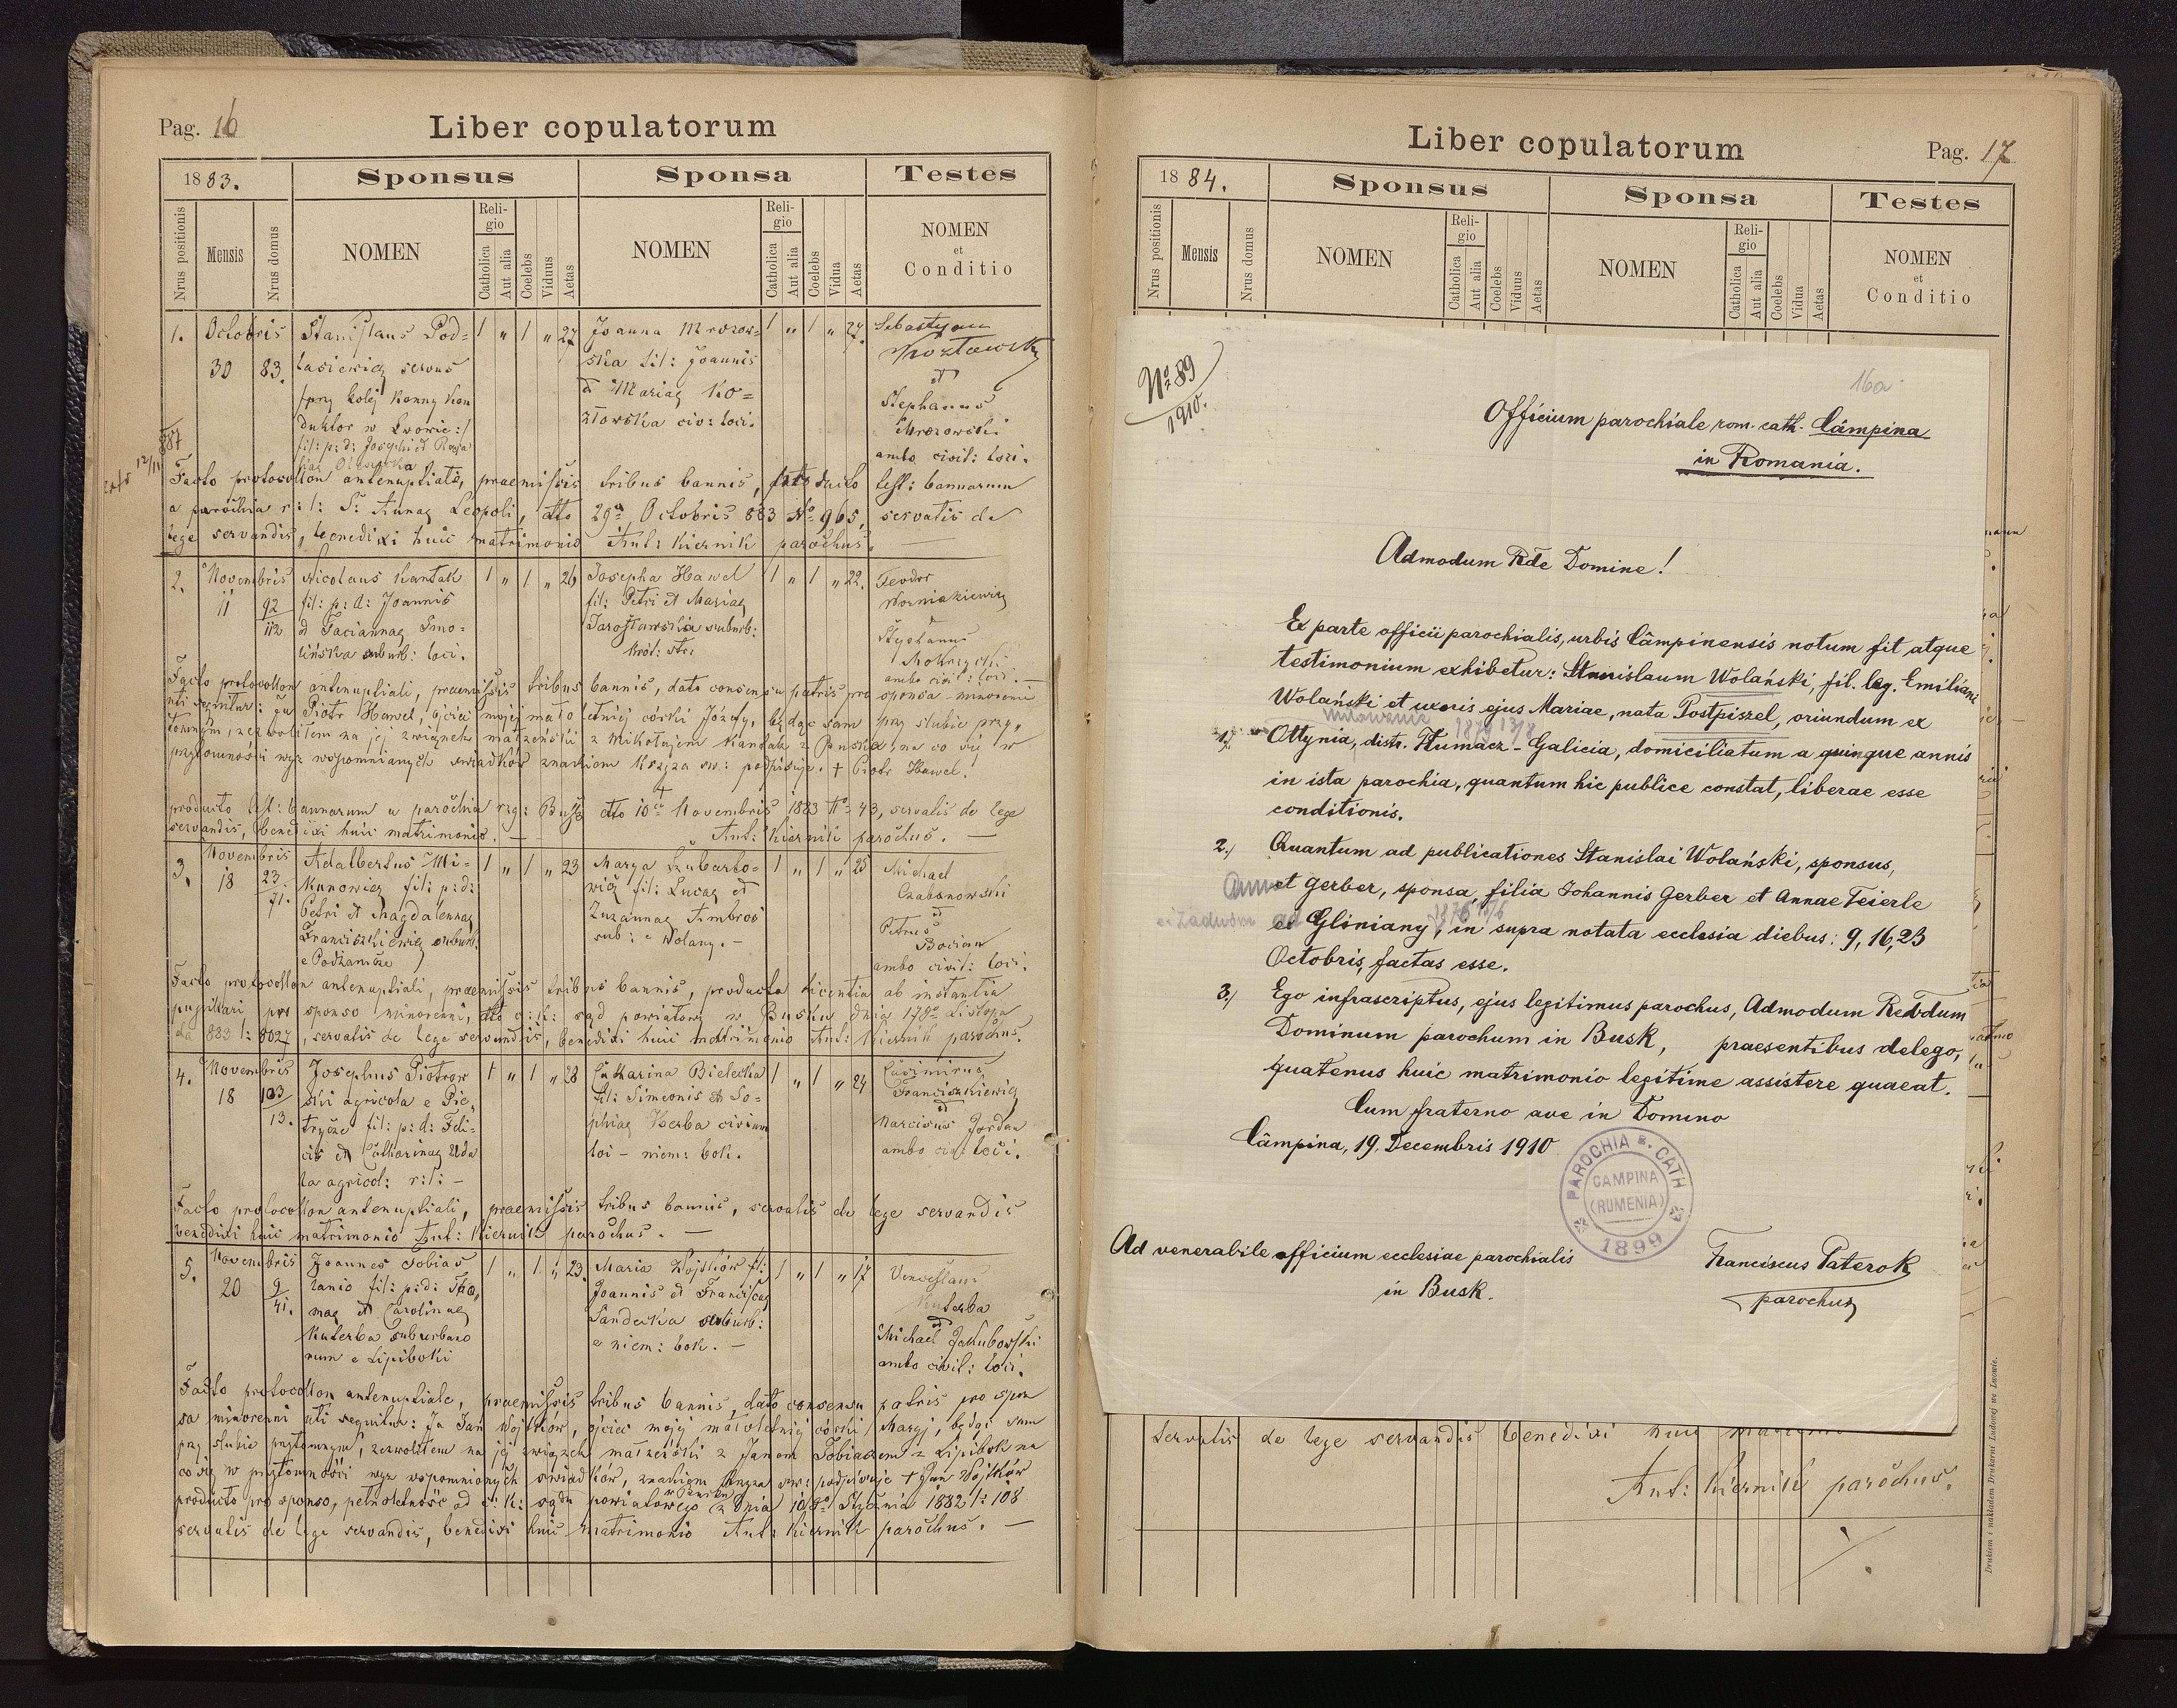 Pag. 16
Liber copulatorum
1883.
Sponsus
Sponsa
Testes
Nrus positionis
Mensis
Nrus domus
NOMEN
Religio
Catholica
Aut alia
Coelebs
Viduus
Aetas
NOMEN
Religio
Catholica
Aut alia
Coelebs
Vidua
Aetas
NOMEN
et
Conditio
1.
Octobris
30
83.
Stanislaus Pod=
lasiewicz servus
przy kolej konnej kon
duktor w Lwowie:/
fil: p: d: Josephi et
1 " 1 " 27
Joanna Mrozow=
ska fil: Joannis
et Mariae Ko=
złowska civ: loci.
1 " 1 " 27.
Sebastyan
Kozłowski
et
Stephanus
Mrozowski
ambo civil: loci.
Facto protocollon antenuptiali, praemissis tribus bannis, producto test: bannorum
a parochia r: l: S: Annae Leopoli, dto 29a Octobris 883 No 965, servatis de
lege servandis, benedixi huic matrimonio Ant: Kiernik parochus.
2.
Novembris
11
92
112
Nicolaus Kantak
fil: p: d: Joannis
et Taciannae Smo=
lińska suburb: loci.
1 " 1 " 26
Josepha Hawel
fil: Petri et Mariae
Jarosławska suburb:
1 " 1 " 22.
Teodor
Woźniakiewicz
Stephanus
Mokrzycki
ambo civil: loci.
Facto protocollon antenuptiali, praemissis tribus bannis, dato consensu patris pro sponsa minorenni
uti sequitur: Ja Piotr Hawel, ojciec mojej małoletniej córki Józefy, będąc sam przy ślubie przy=
tomnym, zezwoliłem na jej związek małżeński z Mikołajem Kantak z Buska, na co się w
przytomności wyż wspomnianych świadków znakiem krzyża sw: podpisuje. + Piotr Hawel.
producto test: bannorum a parochia Busk dto 10a Novembris 1883 No 43, servatis de lege
servandis, benedixi huic matrimonio. — Ant: Kiernik parochus. —
3.
Novembris
18
23.
71.
Adalbertus Mi=
kunowicz fil: p: d:
Petri et Magdalennae
Franciszkiewicz suburb:
e Podzamcze
1 " 1 " 23
Marya Lubarto=
wicz fil: Lucae et
Zuzannae Ambros
sub: e Wolany. —
1 " 1 " 25
Michael
Czabanowski
et
Petrus
Bocian
ambo civil: loci.
Facto protocollon antenuptiali, praemissis tribus bannis, producta licentia ab instantia
pupillari pro sponso minorenni, dto c: k: sąd powiatowy w Busku dnia 17go Listopa
da 883 l: 8027, servatis de lege servandis, benedixi huic matrimonio Ant: Kiernik parochus.
4.
Novembris
18
103
13.
Josephus Piotrow
ski agricola e Pie=
trycze fil: p: d: Feli=
cis et Catharinae Uda
la agricol: r: l: —
1 " 1 " 28
Catharina Bielecka
fil: Simeonis et So=
phiae Herba civium
loci – niem: bok.
1 " 1 " 24
Casimirus
Franciszkiewicz
et
Narcisus Jordan
ambo civil: loci.
Facto protocollon antenuptiali, praemissis tribus bannis, servatis de lege servandis
benedixi huic matrimonio Ant: Kiernik parochus. —
5.
Novembris
20
9
41.
Joannes Tobias
fil: p: d: Tho=
mae et Carolinae
Kuterba suburbano
rum e Lipiboki
1 " 1 " 23.
Maria Wojtków fil:
Joannis et Franciscae
Sandecka suburb:
e niem: bok. —
1 " 1 " 17
Venceslaus
Kuterba
et
Michael Jakubowski
ambo civil: loci.
Facto protocollon antenuptiale, praemissis tribus bannis, dato consensu patris pro spon
sa minorenni uti sequitur: Ja Jan Wojtków, ojciec mojej małoletniej córki Maryi, będąc sam
przy ślubie przytomnym, zezwoliłem na jej związek małżeński z Janem Tobiaszem z Lipibok na
co się w przytomności wyż wspomnionych świadków, znakiem krzyża sw: podpisuje + Jan Wojtków
producto pro sponso, pełnoletność od c: k: sądu powiatowego w Busku z dnia 10go Stycznia 1882 l: 108
servatis de lege servandis, benedixi huic matrimonio Ant: Kiernik parochus. —
Liber copulatorum
Pag. 17
1884.
Sponsus
Sponsa
Testes
Nrus positionis
Mensis
Nrus domus
NOMEN
Religio
Catholica
Aut alia
Coelebs
Viduus
Aetas
NOMEN
Religio
Catholica
Aut alia
Coelebs
Vidua
Aetas
NOMEN
et
Conditio
No 89
1910.
16a
Officium parochiale rom. cath. Câmpina
in Romania.
Admodum Rde Domine!
Ex parte officii parochialis, urbis Câmpinensis notum fit atque
testimonium exhibetur: Stanislaum Wolański, fil. leg. Emiliani
Wolański et uxoris ejus Mariae, nata Postpiszel, oriundum ex
1879 13/8
1./ Ottynia, distr. Tłumacz - Galicia, domiciliatum a quinque annis
in ista parochia, quantum hic publice constat, liberae esse
conditionis.
2./ Quantum ad publicationes Stanislai Wolański, sponsus,
et Gerber, sponsa, filia Johannis Gerber et Annae Feierle
ex Gliniany, in supra notata ecclesia diebus: 9, 16, 23
Octobris, factas esse.
3./ Ego infrascriptus, ejus legitimus parochus, Admodum Revdum
Dominum parochum in Busk, praesentibus delego,
quatenus huic matrimonio legitime assistere queat.
Cum fraterno ave in Domino
Câmpina, 19. Decembris 1910
PAROCHIA R. CATH
CAMPINA
(RUMENIA)
1899
Ad venerabile officium ecclesiae parochialis
in Busk.
Franciscus Paterok
parochus
servatis de lege servandis benedixi huic
Ant: Kiernik parochus.
Drukiem i nakładem Drukarni Ludowej we Lwowie.